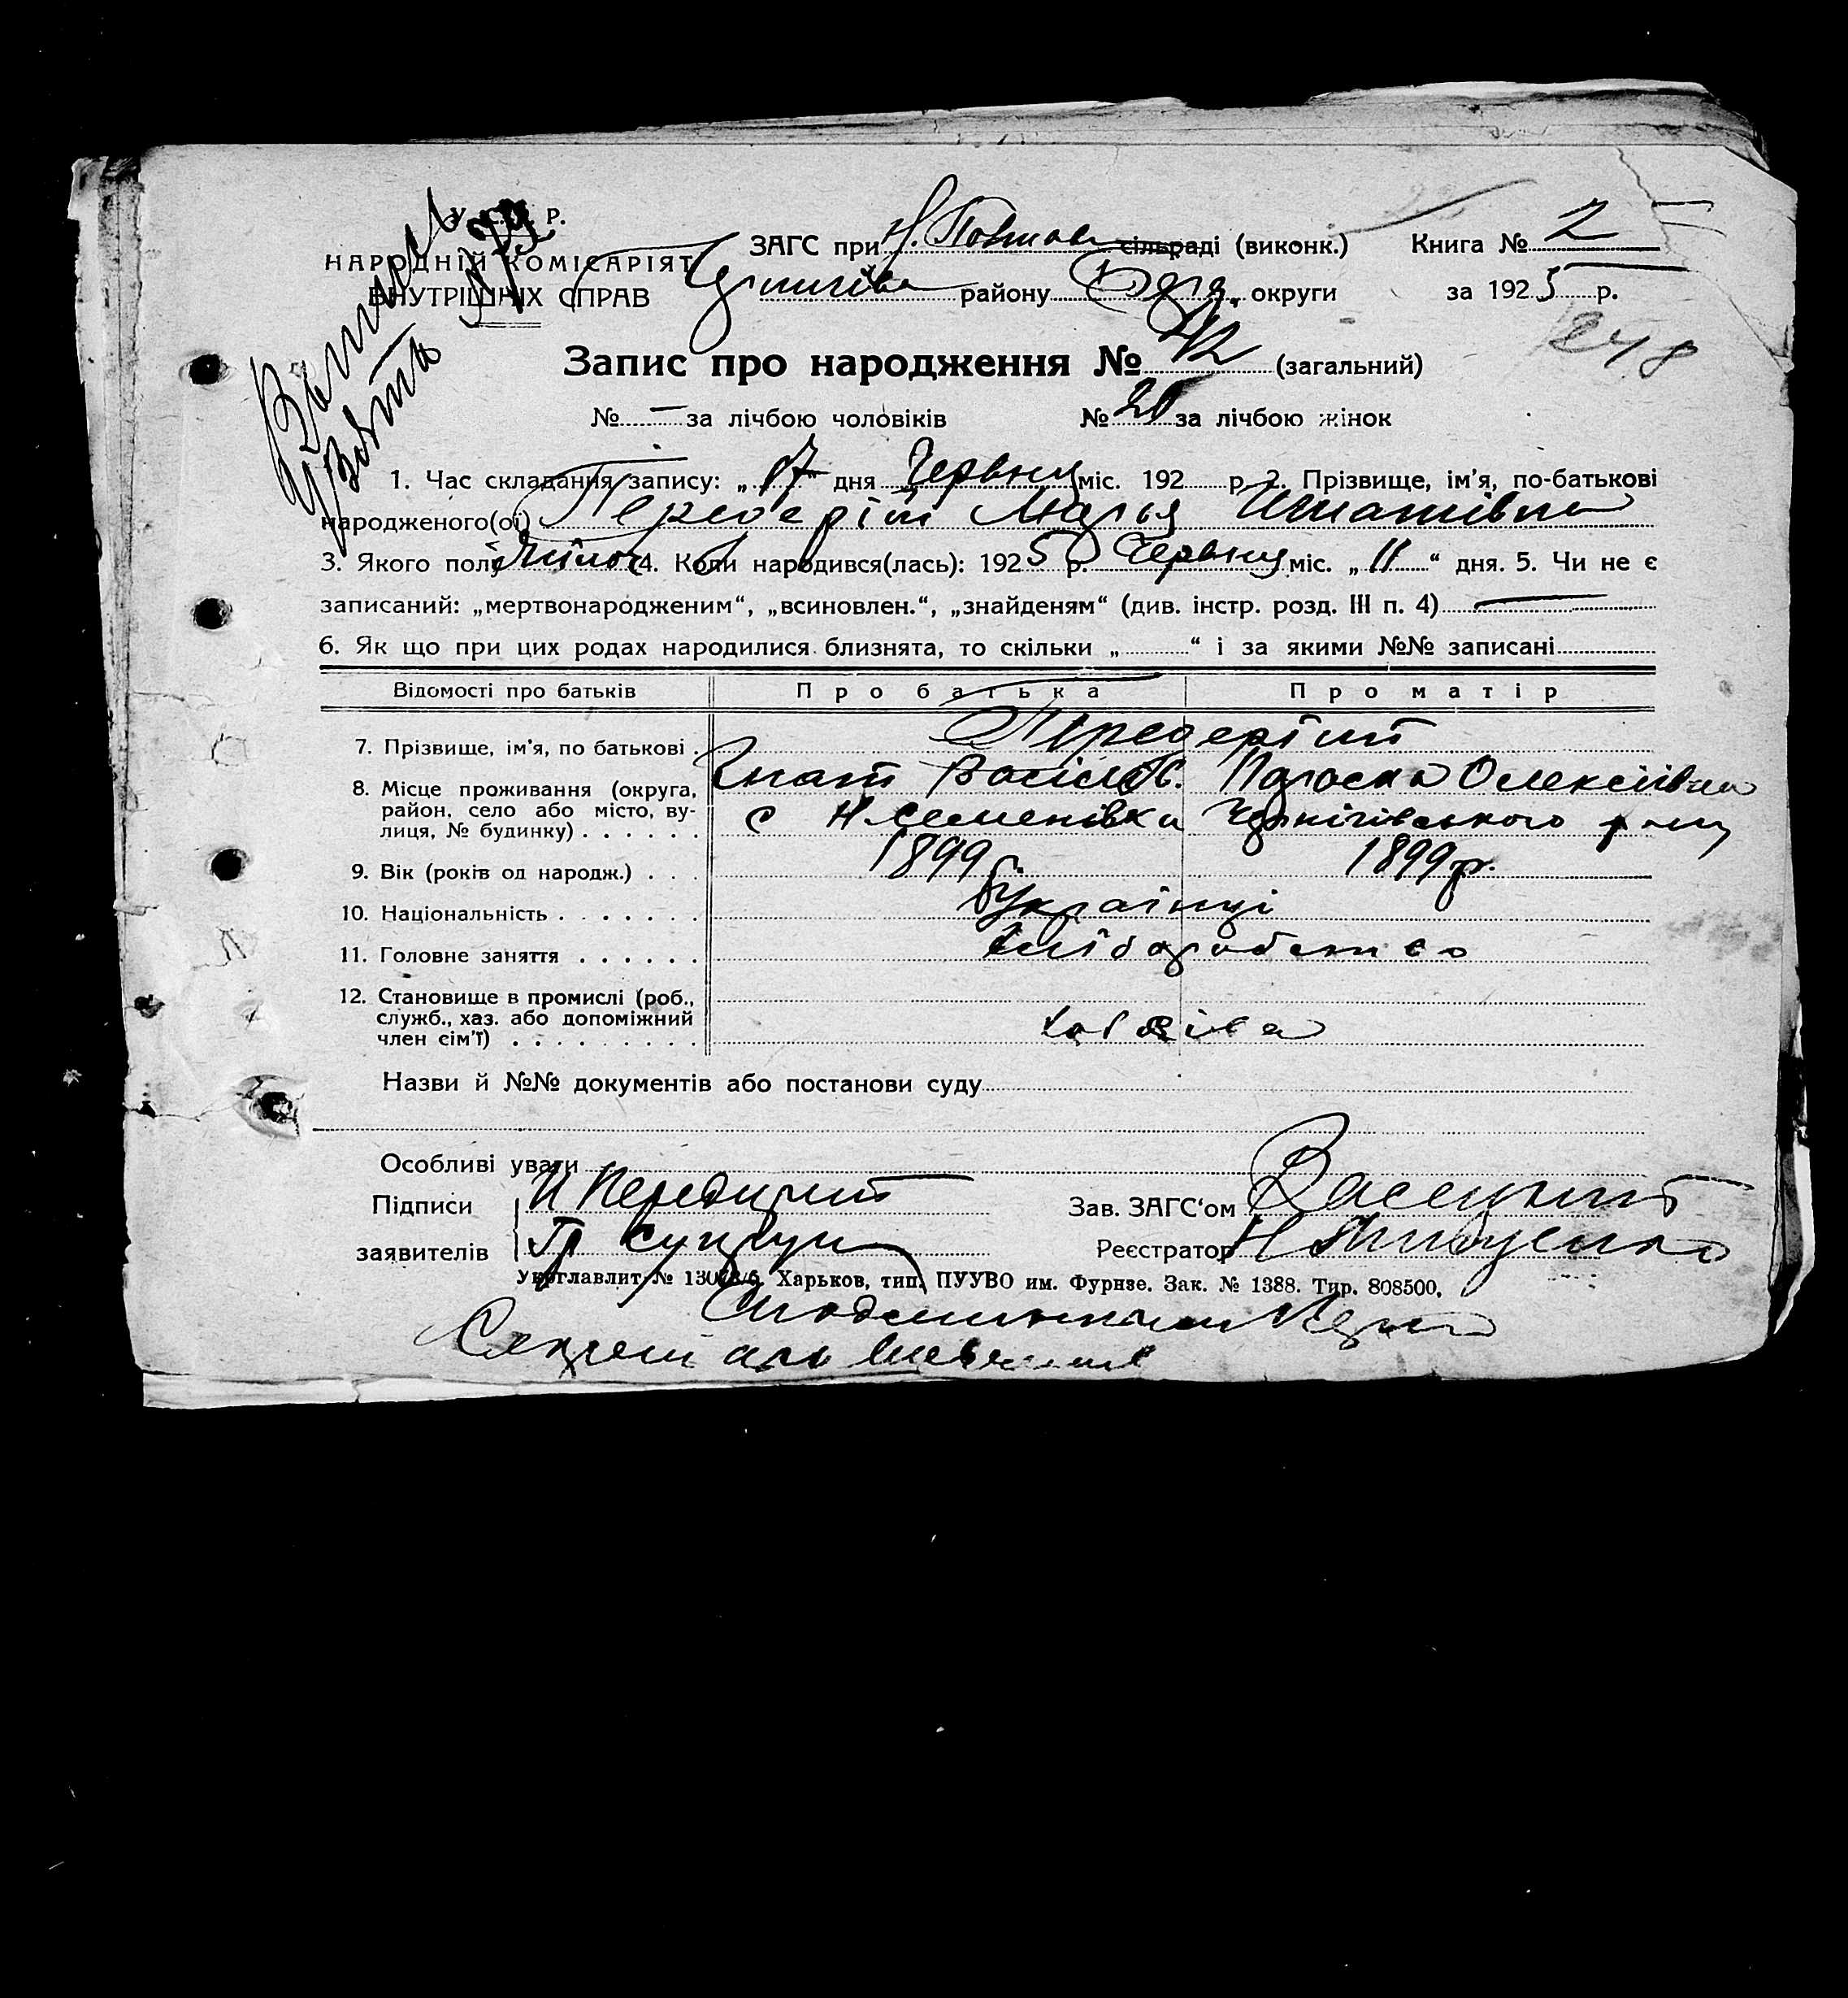 У. С. Р. Р.
НАРОДНІЙ КОМІСАРІЯТ
ВНУТРІШНІХ СПРАВ
Виписъ
узята
ЗАГС при сільраді (виконк.) Книга № 2
району округи за 1925 р.
248
Запис про народження № 42 (загальний)
№ — за лічбою чоловіків № 20 за лічбою жінок
1. Час складання запису: „17“ дня Червня міс. 192 р. 2. Прізвище, ім'я, по-батькові
народженого(ої) Передерій Марья Игнатівна
3. Якого полу жіноч 4. Коли народився(лась): 1925 р. Червня міс. „11“ дня. 5. Чи не є
записаний: „мертвонародженим“, „всиновлен.“, „знайденям“ (див. інстр. розд. III п. 4) —
6. Як що при цих родах народилися близнята, то скільки „ “ і за якими №№ записані
Відомості про батьків Про батька Про матір
7. Прізвище, ім'я, по батькові . Передерій
Гнат Васильов. Параска Олексіївна
8. Місце проживання (округа, район, село або місто, вулиця, № будинку) . . . . . . с Н. Семенівка Чернігівського р-ну
9. Вік (років од народж.) . . . 1899 р. 1899 р.
10. Національність . . . . . . . Українці
11. Головне заняття . . . . . . Хліборобство
12. Становище в промислі (роб., служб., хаз. або допоміжний член сім'ї) . . . . . . . . . хазяіва
Назви й №№ документів або постанови суду
Особливі уваги
Підписи И Передирий Зав. ЗАГС'ом Васецкий
заявителів Гр Супрун Реєстратор Н
Укрглавлит № 13073/б. Харьков, тип. ПУУВО им. Фрунзе. Зак. № 1388. Тир. 808500.
Секретарь